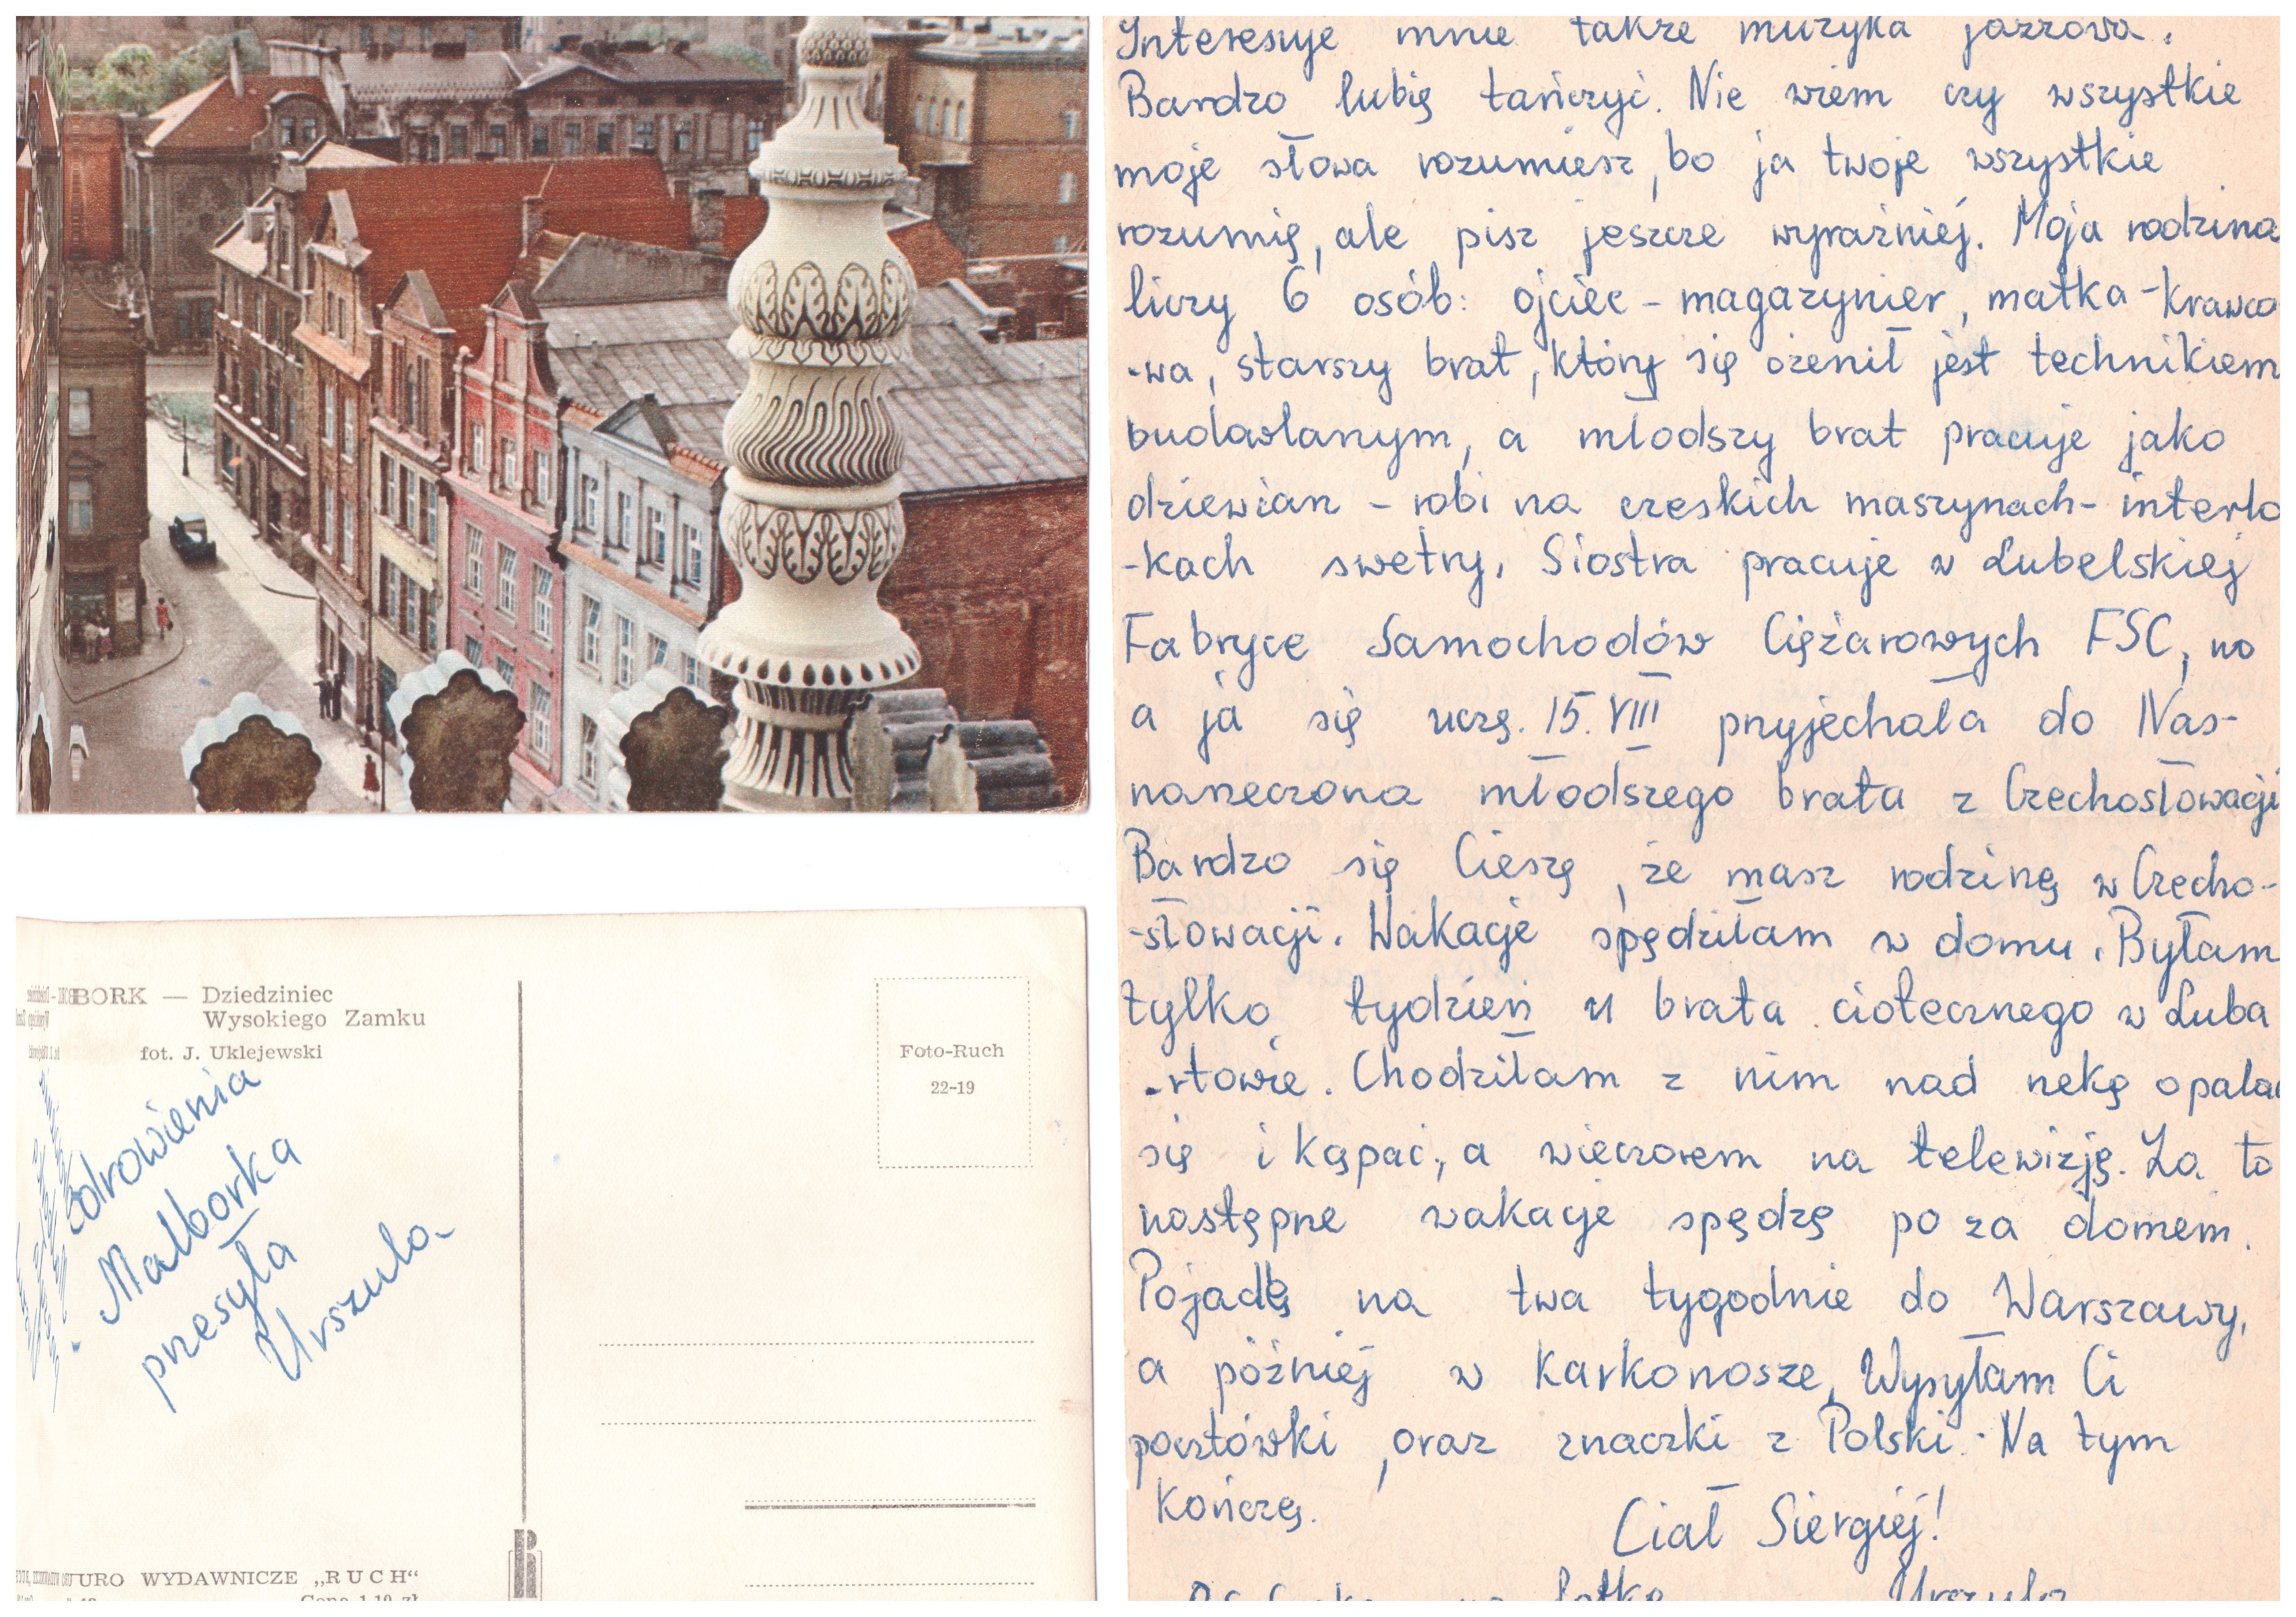 BORK — Dziedziniec
Wysokiego Zamku
fot. J. Uklejewski
Foto-Ruch
22-19
zdrowienia
Malborka
przesyła
Urszula.
URO WYDAWNICZE „RUCH“
Cena 1,10 zł
Interesuje mnie także muzyka jazzowa.
Bardzo lubię tańczyć. Nie wiem czy wszystkie
moje słowa rozumiesz, bo ja twoje wszystkie
rozumię, ale pisz jeszcze wyraźniej. Moja rodzina
liczy 6 osób: ojciec - magazynier, matka - krawco
-wa, starszy brat, który się ożenił jest technikiem
budowlanym, a młodszy brat pracuje jako
dziewiarz - robi na czeskich maszynach - interlo
-kach swetry. Siostra pracuje w Lubelskiej
Fabryce Samochodów Ciężarowych FSC, no
a ja się uczę. 15. VIII przyjechała do Nas-
narzeczona młodszego brata z Czechosłowacji
Bardzo się Cieszę, że masz rodzinę w Czecho-
-słowacji. Wakacje spędziłam w domu. Byłam
tylko tydzień u brata ciotecznego w Luba
-rtowie. Chodziłam z nim nad rzekę opalać
się i kąpać, a wieczorem na telewizję. Za to
następne wakacje spędzę po za domem.
Pojadę na twa tygodnie do Warszawy,
a później w Karkonosze, Wysyłam Ci
pocztówki, oraz znaczki z Polski. Na tym
kończę.
Ciał Siergiej!
Urszula